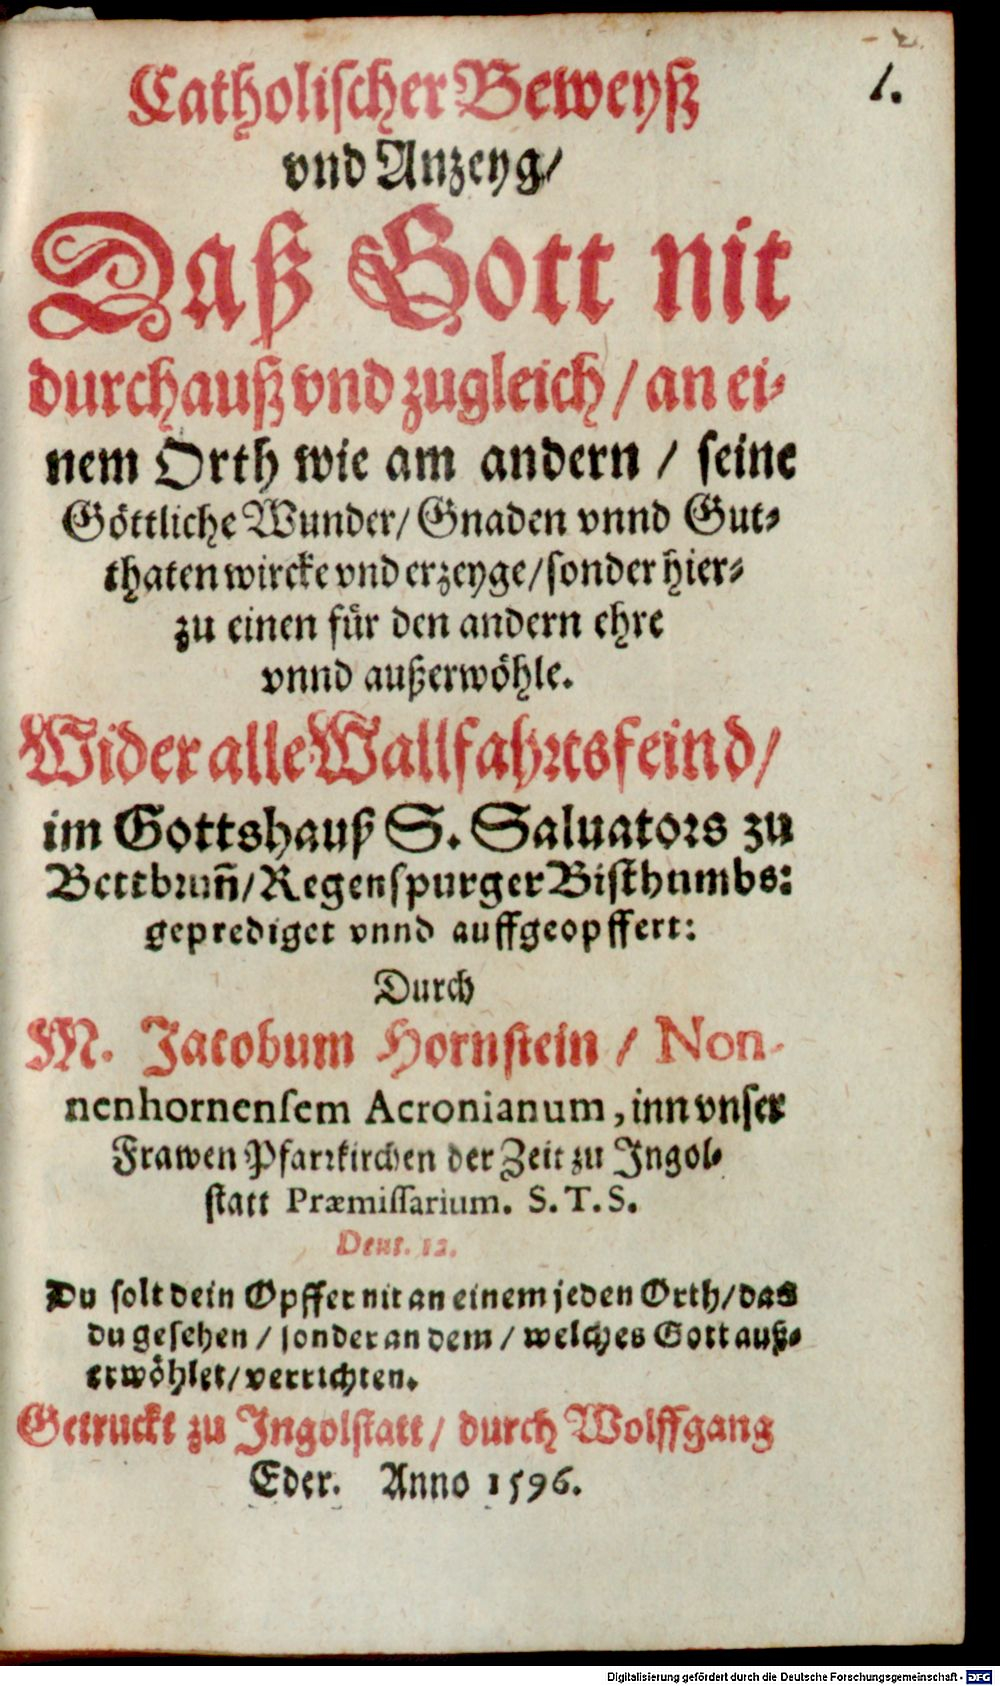 1.
Catholischer Beweyß
vnd Anzeyg/
Daß Gott nit
durchauß vnd zugleich / an ei⸗
nem Orth wie am andern / seine
Göttliche Wunder/ Gnaden vnnd Gut⸗
thaten wircke vnd erzeyge/ sonder hier⸗
zu einen für den andern ehre
vnnd außerwöhle.
Wider alle Wallfahrtsfeind/
im Gottshauß S. Saluators zu
Bettbrun̄/ Regenspurger Bisthumbs:
geprediget vnnd auffgeopffert:
Durch
M. Jacobum Hornstein / Non-
nenhornensem Acronianum, inn vnser
Frawen Pfarrkirchen der Zeit zu Ingol⸗
statt Præmissarium. S. T. S.
Deut. 12.
Du solt dein Opffer nit an einem jeden Orth/ das
du gesehen / sonder an dem / welches Gott auß⸗
erwöhlet/ verrichten.
Getruckt zu Ingolstatt/ durch Wolffgang
Eder. Anno 1596.
Digitalisierung gefördert durch die Deutsche Forschungsgemeinschaft - DFG